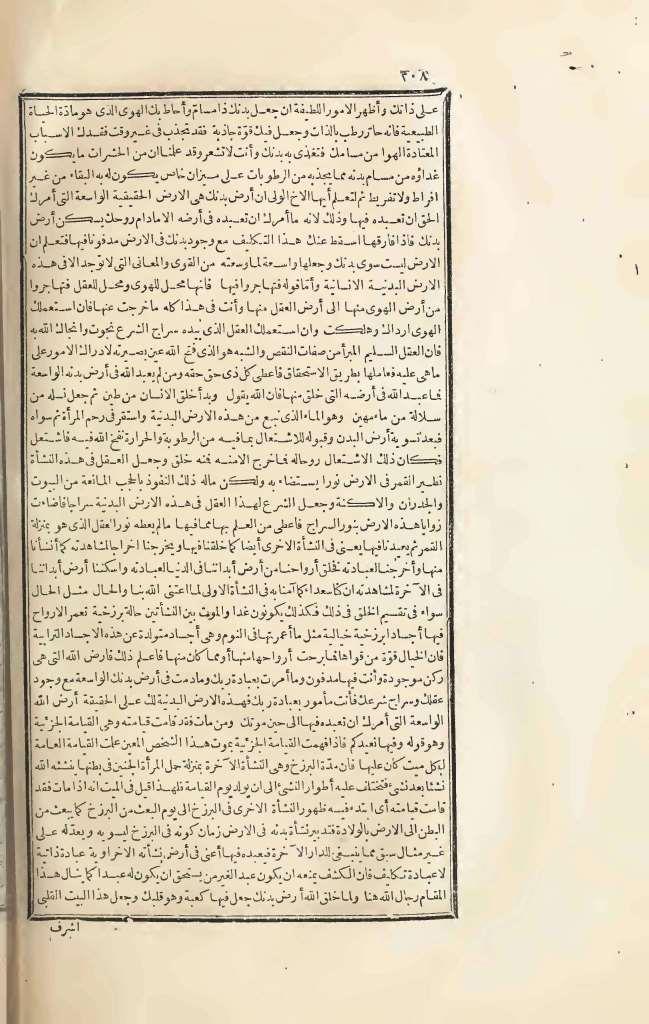 ٣٠٨
على ذاتك وأظهر الامور اللطيفة ان جعل بدنك ذا مسامّ وأحاط بك الهوى الذى هو مادّة الحياة
الطبيعية فانه حارّ رطب بالذات وجعل فيك قوّة جاذبة فقد تجذب فى غير وقت فقدك الاسباب
المعتادة الهوا من مسامك فتغذى به بدنك وأنت لا تشعر وقد علمنا ان من الحشرات ما يكون
غذاؤه من مسام بدنه مما يجذبه من الرطوبات على ميزان خاص يكون له به البقاء من غير
افراط ولا تفريط ثم لتعلم أيها الاخ الولى ان أرض بدنك هى الارض الحقيقية الواسعة التى أمرك
الحق ان تعبده فيها وذلك لانه ما أمرك ان تعبده فى أرضه الا مادام روحك يسكن أرض
بدنك فاذا فارقها اسقط عنك هذا التكليف مع وجود بدنك فى الارض مدفونا فيها فتعلم ان
الارض ليست سوى بدنك وجعلها واسعة لما وسعته من القوى والمعانى التى لا توجد الا فى هذه
الارض البدنية الانسانية وأما قوله فتهاجروا فيها فانها محل للهوى ومحل للعقل فتهاجروا
من أرض الهوى منها الى أرض العقل منها وأنت فى هذا كله ما خرجت عنها فان استعملك
الهوى ارداك وهلكت وان استعملك العقل الذى بيده سراج الشرع نجوت وانجاك الله به
فان العقل السليم المبرأ من صفات النقص والشبه هو الذى فتح الله عين بصيرته لادراك الامور على
ما هى عليه فعاملها بطريق الاستحقاق فاعطى كل ذى حق حقه ومن لم يعبد الله فى أرض بدنه الواسعة
فما عبد الله فى أرضه التى خلق منها فان الله يقول وبدأ خلق الانسان من طين ثم جعل نسله من
سلالة من ماء مهين وهو الماء الذى نبع من هذه الارض البدنية واستقر فى رحم المرأة ثم سواه
فبعد تسوية أرض البدن وقبوله للاشتعال بما فيه من الرطوبة والحرارة نفخ الله فيه فاشتعل
فكان ذلك الاشتعال روحا له فما خرج الا منه فمنه خلق وجعل العقل فى هذه النشأة
نظير القمر فى الارض نورا يستضاء به ولكن ماله ذلك النفوذ بالحجب المانعة من البيوت
والجدران والاكنة وجعل الشرع لهذا العقل فى هذه الارض البدنية سراجا فاضاءت
زوايا هذه الارض بنور السراج فاعطى من العلم بها مما فيها ما لم يعطه نور العقل الذى هو بمنزلة
القمر ثم يعيدنا فيها يعنى فى النشأة الاخرى أيضا كما خلقنا فيها ويخرجنا اخراجا لمشاهدته كما أنشأنا
منها وأخرجنا لعبادته فخلق أرواحنا من أرض أبداننا فى الدنيا لعبادته واسكننا أرض أبداننا
فى الآخرة لمشاهدته ان كنا سعداء كما آمنا به فى النشأة الاولى لما اعتنى الله بنا والحال مثل الحال
سواء فى تقسيم الخلق فى ذلك فكذلك يكونون غدا والموت بين النشأتين حالة برزخية تعمر الارواح
فيها أجسادا برزخية خيالية مثل ما أعمرتها فى النوم وهى أجساد متولدة عن هذه الاجساد الترابية
فان الخيال قوّة من قواها فما برحت أرواحها منها أو مما كان منها فاعلم ذلك فارض الله التى هى
ركن موجودة وأنت فيها مدفون وما أمرت بعبادة ربك وما دمت فى أرض بدنك الواسعة مع وجود
عقلك وسراج شرعك فأنت مأمور بعبادة ربك فهذه الارض البدنية لك على الحقيقة أرض الله
الواسعة التى أمرك ان تعبده فيها الى حين موتك ومن مات فقد قامت قيامته وهى القيامة الجزئية
وهو قوله وفيها نعيدكم فاذا فهمت القيامة الجزئية بموت هذا الشخص المعين علمت القيامة العامة
لكل ميت كان عليها فان مدّة البرزخ وهى النشأة الآخرة بمنزلة حمل المرأة الجنين فى بطنها ينشئه الله
نشئا بعد نشئ فتختلف عليه أطوار النشئ الى ان يولد يوم القيامة فلهذا قيل فى الميت انه اذا مات فقد
قامت قيامته أى ابتدئ فيه ظهور النشأة الاخرى فى البرزخ الى يوم البعث من البرزخ كما يبعث من
البطن الى الارض بالولادة فتدبير نشأة بدنه فى الارض زمان كونه فى البرزخ ليسويه ويعدّله على
غير مثال سبق مما ينبغى للدار الآخرة فيعبده فيها أعنى فى أرض نشأته الاخراوية عبادة ذاتية
لا عبادة تكليف فان الكشف يمنعه ان يكون عبد الغير من يستحق ان يكون له عبدا كما ينال هذا
المقام رجال الله هنا ولما خلق الله أرض بدنك جعل فيها كعبة وهو قلبك وجعل هذا البيت القلبى
اشرف